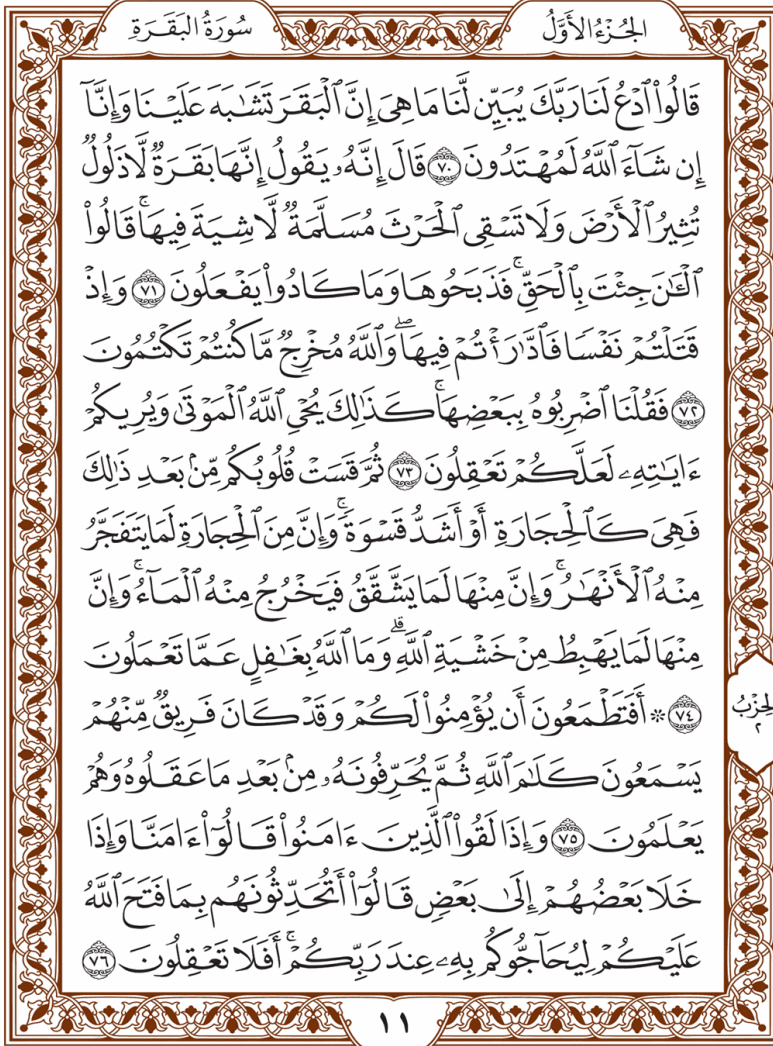 الجُزْءُ الأَوَّلُ
سُورَةُ البَقَرَةِ
قَالُوا۟ ٱدْعُ لَنَا رَبَّكَ يُبَيِّن لَّنَا مَا هِىَ إِنَّ ٱلْبَقَرَ تَشَـٰبَهَ عَلَيْنَا وَإِنَّآ
إِن شَآءَ ٱللَّهُ لَمُهْتَدُونَ ٧٠ قَالَ إِنَّهُۥ يَقُولُ إِنَّهَا بَقَرَةٌ لَّا ذَلُولٌ
تُثِيرُ ٱلْأَرْضَ وَلَا تَسْقِى ٱلْحَرْثَ مُسَلَّمَةٌ لَّا شِيَةَ فِيهَاۚ قَالُوا۟
ٱلْـَٔـٰنَ جِئْتَ بِٱلْحَقِّۚ فَذَبَحُوهَا وَمَا كَادُوا۟ يَفْعَلُونَ ٧١ وَإِذْ
قَتَلْتُمْ نَفْسًا فَٱدَّٰرَْٰٔتُمْ فِيهَاۖ وَٱللَّهُ مُخْرِجٌ مَّا كُنتُمْ تَكْتُمُونَ
٧٢ فَقُلْنَا ٱضْرِبُوهُ بِبَعْضِهَاۚ كَذَٰلِكَ يُحْىِ ٱللَّهُ ٱلْمَوْتَىٰ وَيُرِيكُمْ
ءَايَـٰتِهِۦ لَعَلَّكُمْ تَعْقِلُونَ ٧٣ ثُمَّ قَسَتْ قُلُوبُكُم مِّنۢ بَعْدِ ذَٰلِكَ
فَهِىَ كَٱلْحِجَارَةِ أَوْ أَشَدُّ قَسْوَةًۚ وَإِنَّ مِنَ ٱلْحِجَارَةِ لَمَا يَتَفَجَّرُ
مِنْهُ ٱلْأَنْهَـٰرُۚ وَإِنَّ مِنْهَا لَمَا يَشَّقَّقُ فَيَخْرُجُ مِنْهُ ٱلْمَآءُۚ وَإِنَّ
مِنْهَا لَمَا يَهْبِطُ مِنْ خَشْيَةِ ٱللَّهِۗ وَمَا ٱللَّهُ بِغَـٰفِلٍ عَمَّا تَعْمَلُونَ
٧٤ ۞ أَفَتَطْمَعُونَ أَن يُؤْمِنُوا۟ لَكُمْ وَقَدْ كَانَ فَرِيقٌ مِّنْهُمْ
يَسْمَعُونَ كَلَـٰمَ ٱللَّهِ ثُمَّ يُحَرِّفُونَهُۥ مِنۢ بَعْدِ مَا عَقَلُوهُ وَهُمْ
يَعْلَمُونَ ٧٥ وَإِذَا لَقُوا۟ ٱلَّذِينَ ءَامَنُوا۟ قَالُوٓا۟ ءَامَنَّا وَإِذَا
خَلَا بَعْضُهُمْ إِلَىٰ بَعْضٍ قَالُوٓا۟ أَتُحَدِّثُونَهُم بِمَا فَتَحَ ٱللَّهُ
عَلَيْكُمْ لِيُحَآجُّوكُم بِهِۦ عِندَ رَبِّكُمْۚ أَفَلَا تَعْقِلُونَ ٧٦
لحِزْبُ
٢
١١